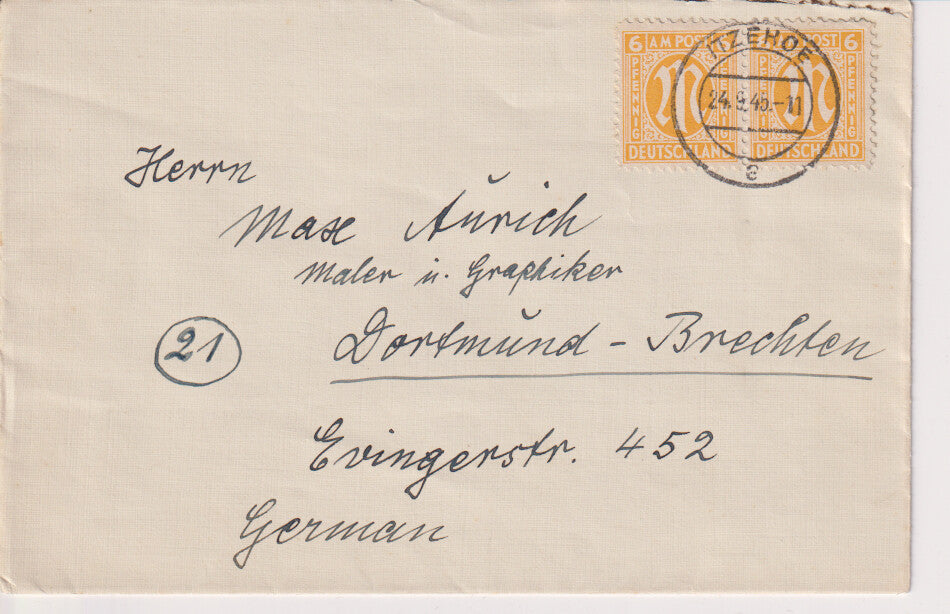 6 AM POST 6
PFENNIG PFENNIG
DEUTSCHLAND DEUTSCHLAND
ITZEHOE
24.9.45.-11
e
Herrn
Max Aŭrich
Maler ŭ. Graphiker
21
Dortmŭnd - Brechten
Evingerstr. 452
German